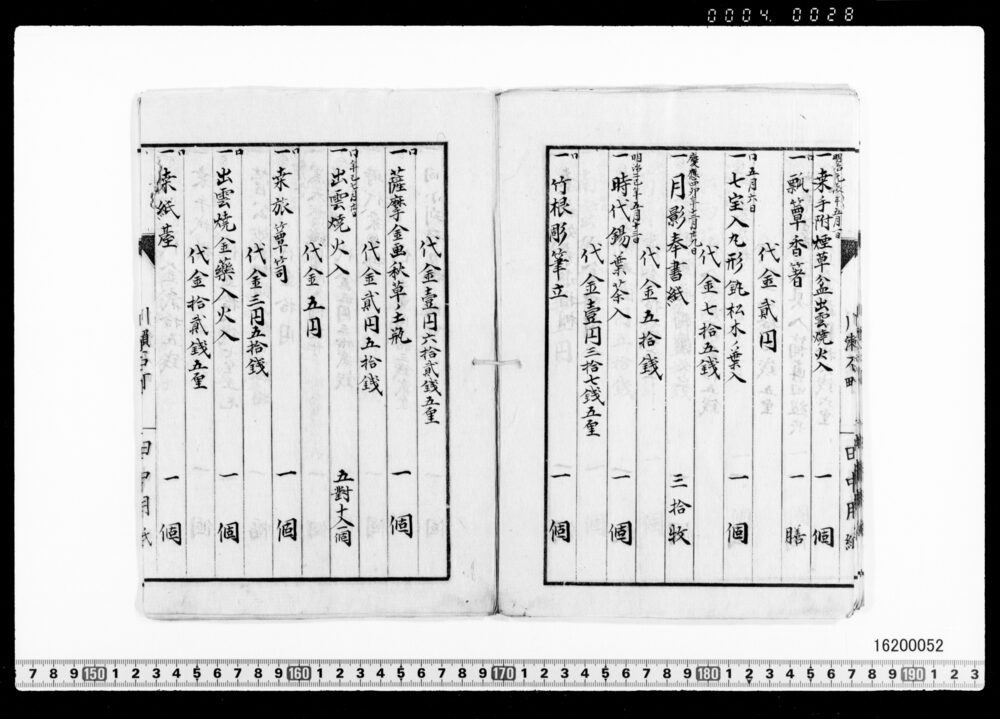 0004 0028
一 桑手附煙草盆出雲焼火入 一 個
一 瓢簞香箸 一 膳
代金貳円
口 五月六日
一 七宝入丸形 松木ノ葉入 一 個
代金七拾五銭
慶應四卯年十二月廿九日
一 月影奉書紙 三拾枚
代金五拾銭
一 時代錫葉茶入 一 個
代金壹円三拾七銭五厘
口
一 竹根彫筆立 一 個
代金壹円六拾貳銭五厘
口
一 薩摩金画秋草土瓶 一 個
代金貳円五拾銭
一 出雲焼火入 五對 個
代金五円
口
一 桑旅簞笥 一 個
代金三円五拾銭
口
一 出雲焼金藥入火入 一 個
代金拾貳銭五厘
口
一 桑紙臺 一 個
田中用紙
16200052
7 8 9 150 1 2 3 4 5 6 7 8 9 160 1 2 3 4 5 6 7 8 9 170 1 2 3 4 5 6 7 8 9 180 1 2 3 4 5 6 7 8 9 190 1 2 3